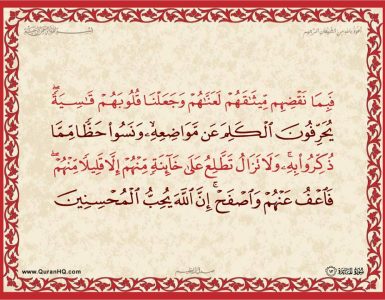 أعوذ بالله من الشيطان الرجيم
فَبِمَا نَقْضِهِم مِّيثَٰقَهُمْ لَعَنَّٰهُمْ وَجَعَلْنَا قُلُوبَهُمْ قَٰسِيَةً ۖ
يُحَرِّفُونَ ٱلْكَلِمَ عَن مَّوَاضِعِهِۦ ۙ وَنَسُوا۟ حَظًّا مِّمَّا
ذُكِّرُوا۟ بِهِۦ ۚ وَلَا تَزَالُ تَطَّلِعُ عَلَىٰ خَآئِنَةٍ مِّنْهُمْ إِلَّا قَلِيلًا مِّنْهُمْ ۖ
فَٱعْفُ عَنْهُمْ وَٱصْفَحْ ۚ إِنَّ ٱللَّهَ يُحِبُّ ٱلْمُحْسِنِينَ
www.QuranHQ.com